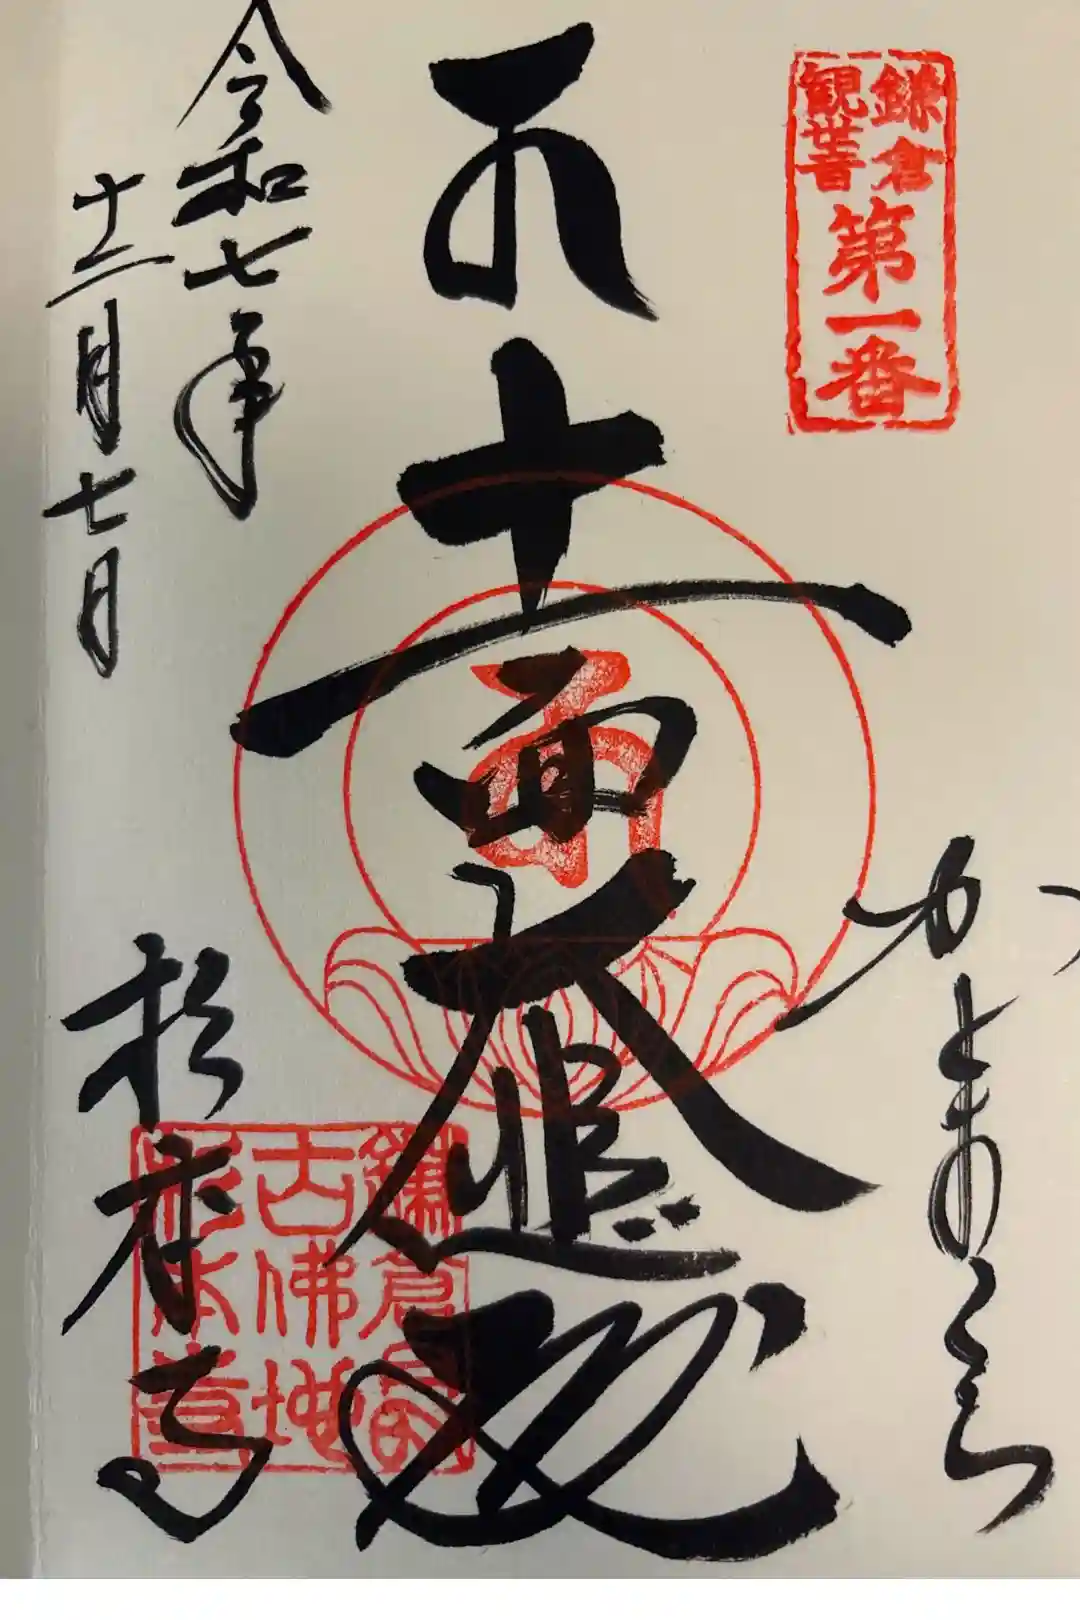 鎌倉
観世音
第一番
かまくら
十一面大悲殿
令和七年
十二月七日
杉本寺
鎌倉最
古佛地
杉本堂